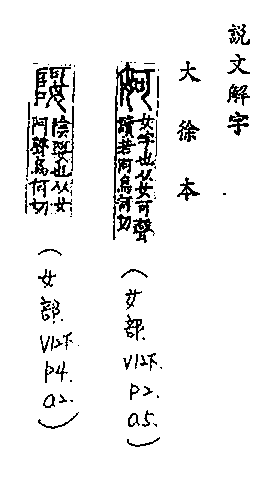 説文解字
大徐本
妸 女字也从女可聲
讀若阿烏何切
(女部. V12下. P2. a5.)
娿 陰娿也从女
阿聲烏何切
(女部. V12下. P4. a2.)